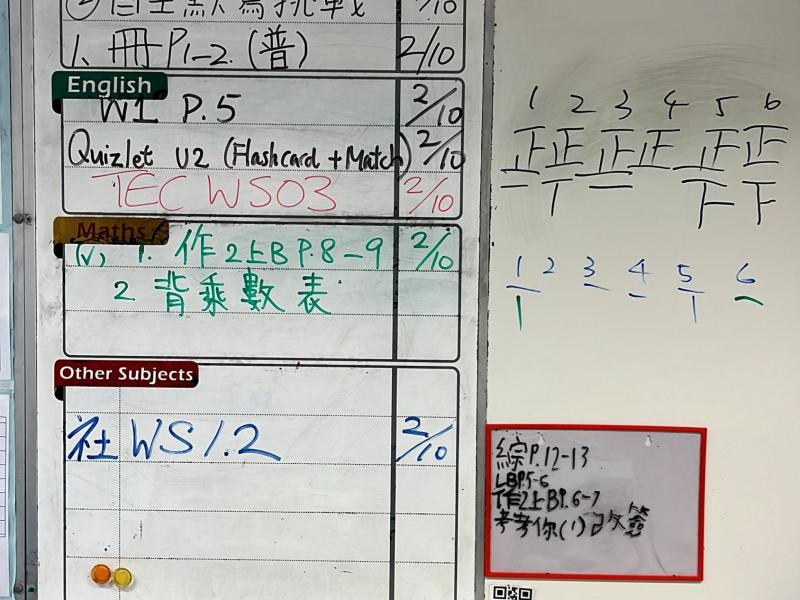 ② 自主默寫挑戰 /10
1. 冊P1-2 (普) 2/10
English
W1 P.5 2/10
Quizlet U2 (Flashcard + Match) 2/10
TEC WS03 2/10
Maths
(v) 1. 作2上B P.8-9 2/10
2 背乘數表
Other Subjects
社 WS 1.2 2/10
1 2 3 4 5 6
正 正 正 正 正 正
1 2 3 4 5 6
綜P.12-13
LBP.5-6
作2上BP.6-7
考考你(1)改簽